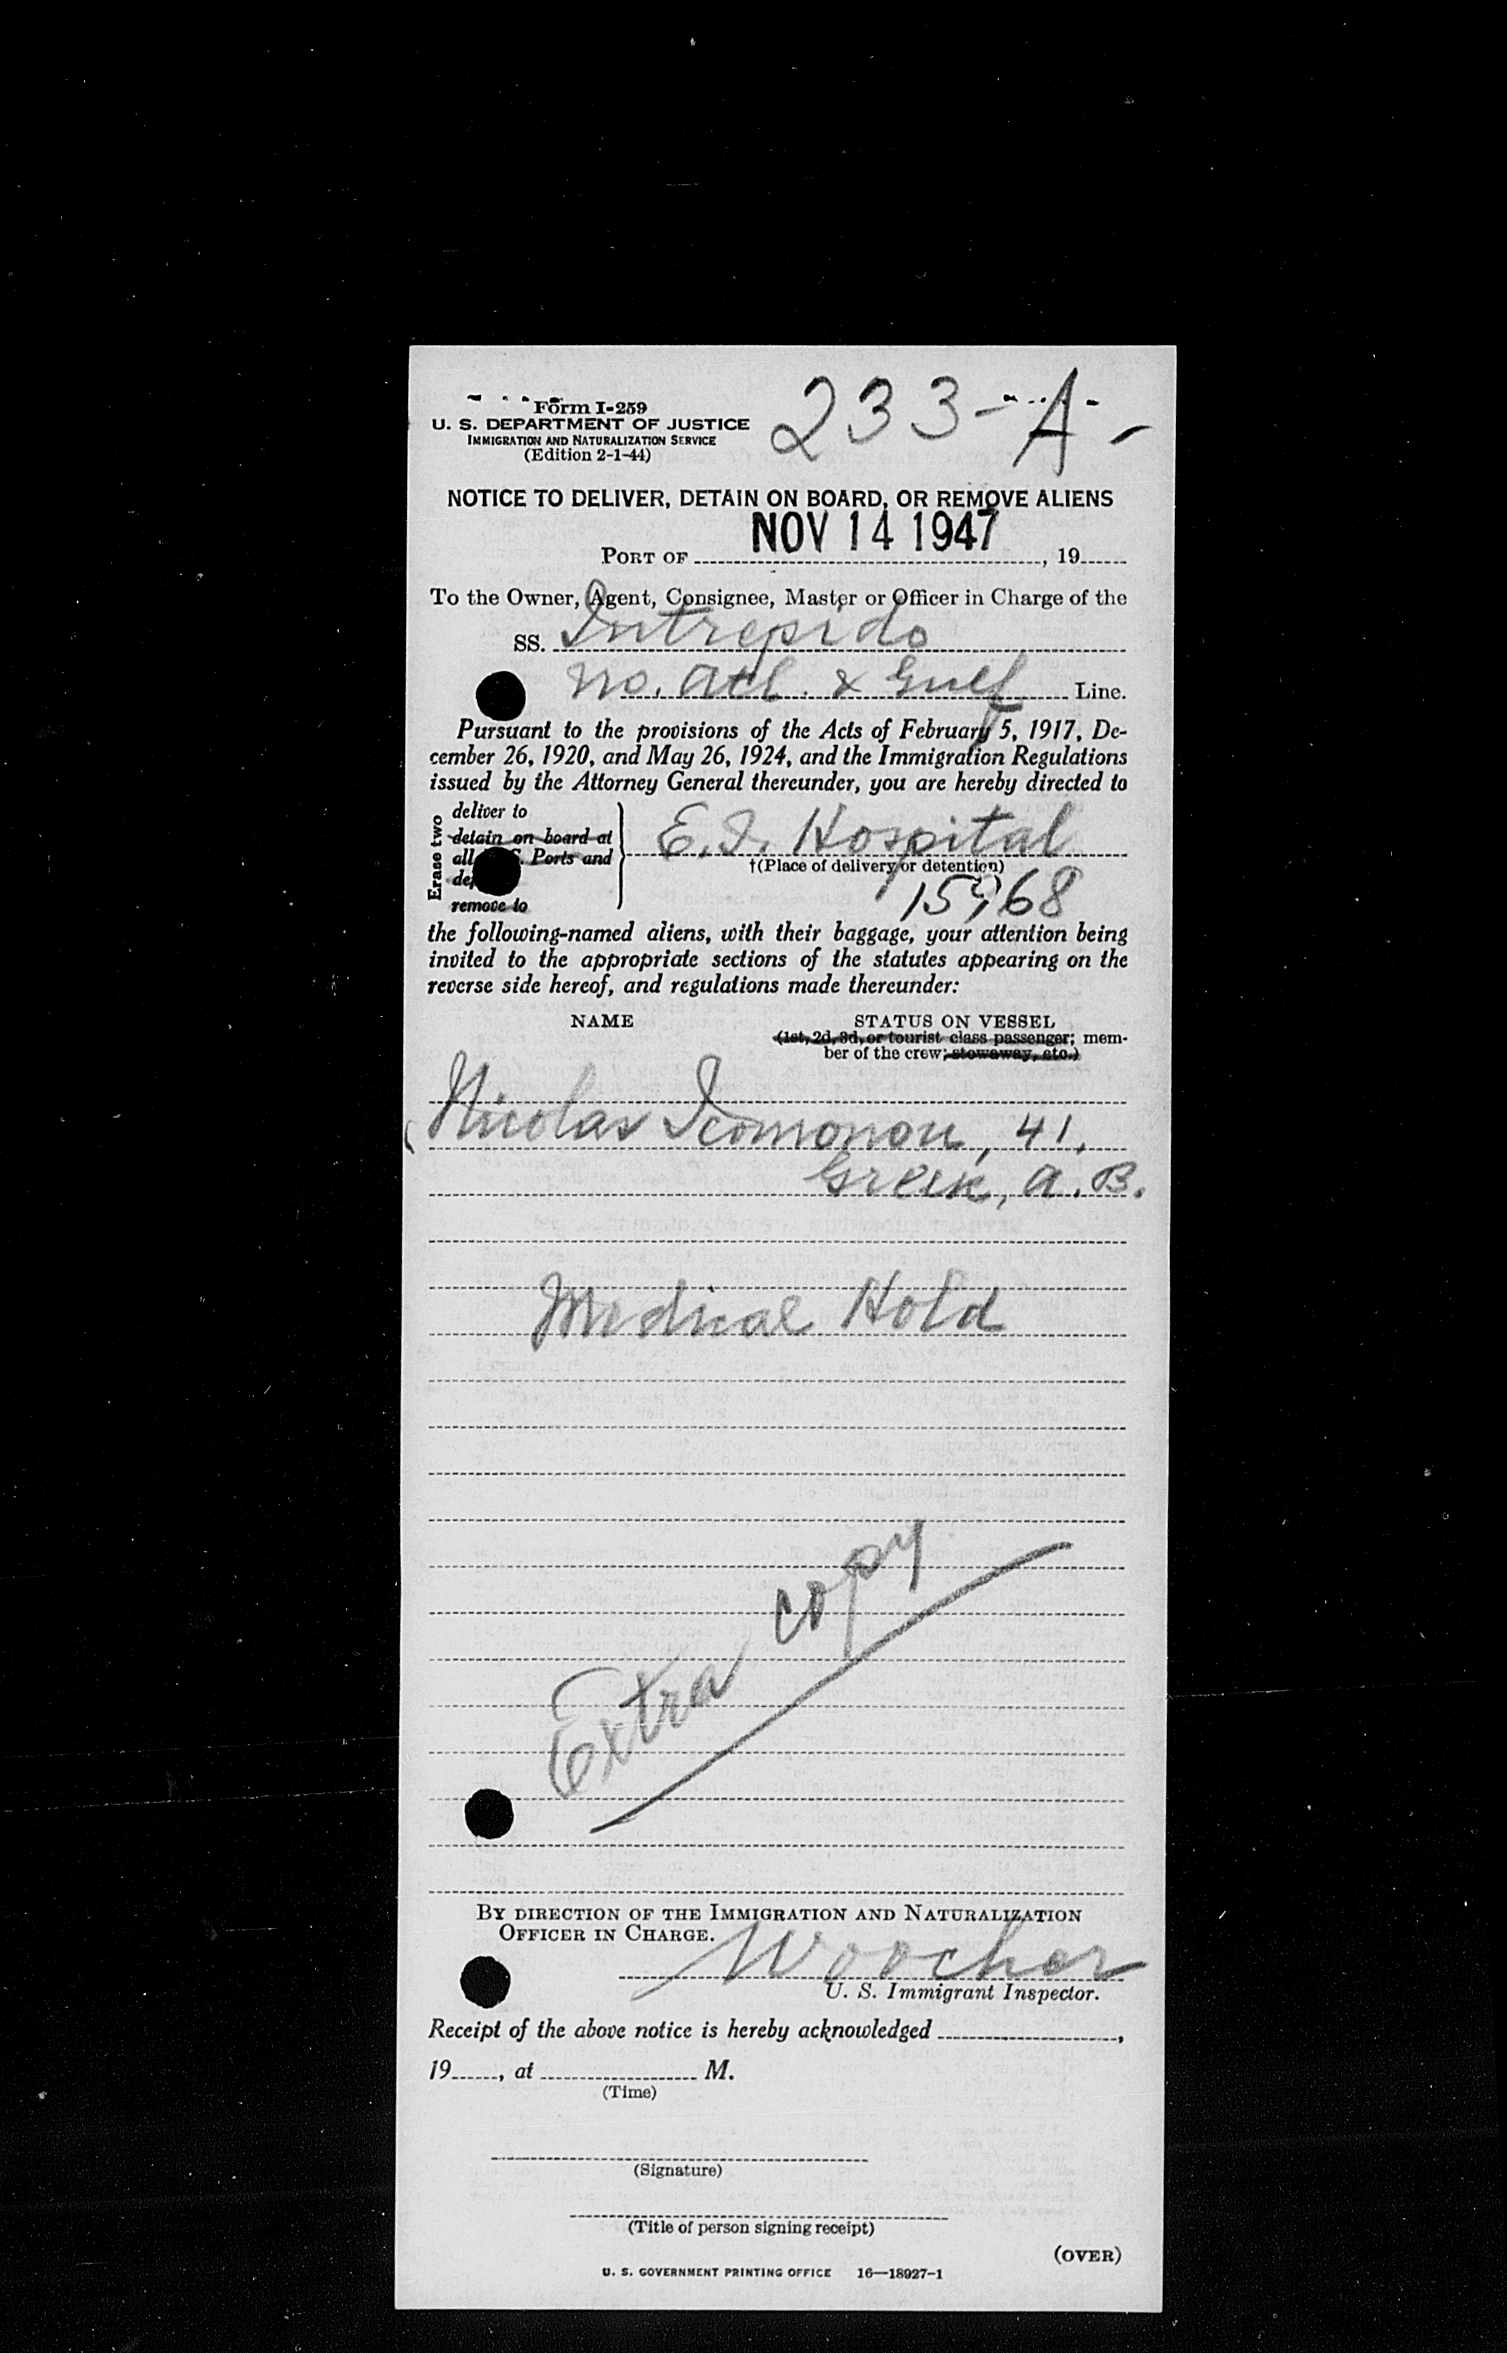 Form I-259
233-A-
U. S. DEPARTMENT OF JUSTICE
IMMIGRATION AND NATURALIZATION SERVICE
(Edition 2-1-44)
NOTICE TO DELIVER, DETAIN ON BOARD, OR REMOVE ALIENS
NOV 14 1947
PORT OF , 19
To the Owner, Agent, Consignee, Master or Officer in Charge of the
SS. Intrepido
No. Atl. & Gulf Line.
Pursuant to the provisions of the Acts of February 5, 1917, De-
cember 26, 1920, and May 26, 1924, and the Immigration Regulations
issued by the Attorney General thereunder, you are hereby directed to
Erase two
deliver to
detain on board at
all Ports and
remove to
E. I. Hospital
†(Place of delivery or detention)
15968
the following-named aliens, with their baggage, your attention being
invited to the appropriate sections of the statutes appearing on the
reverse side hereof, and regulations made thereunder:
NAME STATUS ON VESSEL
(1st, 2d, 3d, or tourist class passenger; mem-
ber of the crew; stowaway, etc.)
Nicolas Icomonou, 41,
Greek, A.B.
Medical Hold
Extra copy
BY DIRECTION OF THE IMMIGRATION AND NATURALIZATION
OFFICER IN CHARGE.
Woocher
U. S. Immigrant Inspector.
Receipt of the above notice is hereby acknowledged ,
19 , at M.
(Time)
(Signature)
(Title of person signing receipt)
(OVER)
U. S. GOVERNMENT PRINTING OFFICE 16—18927-1